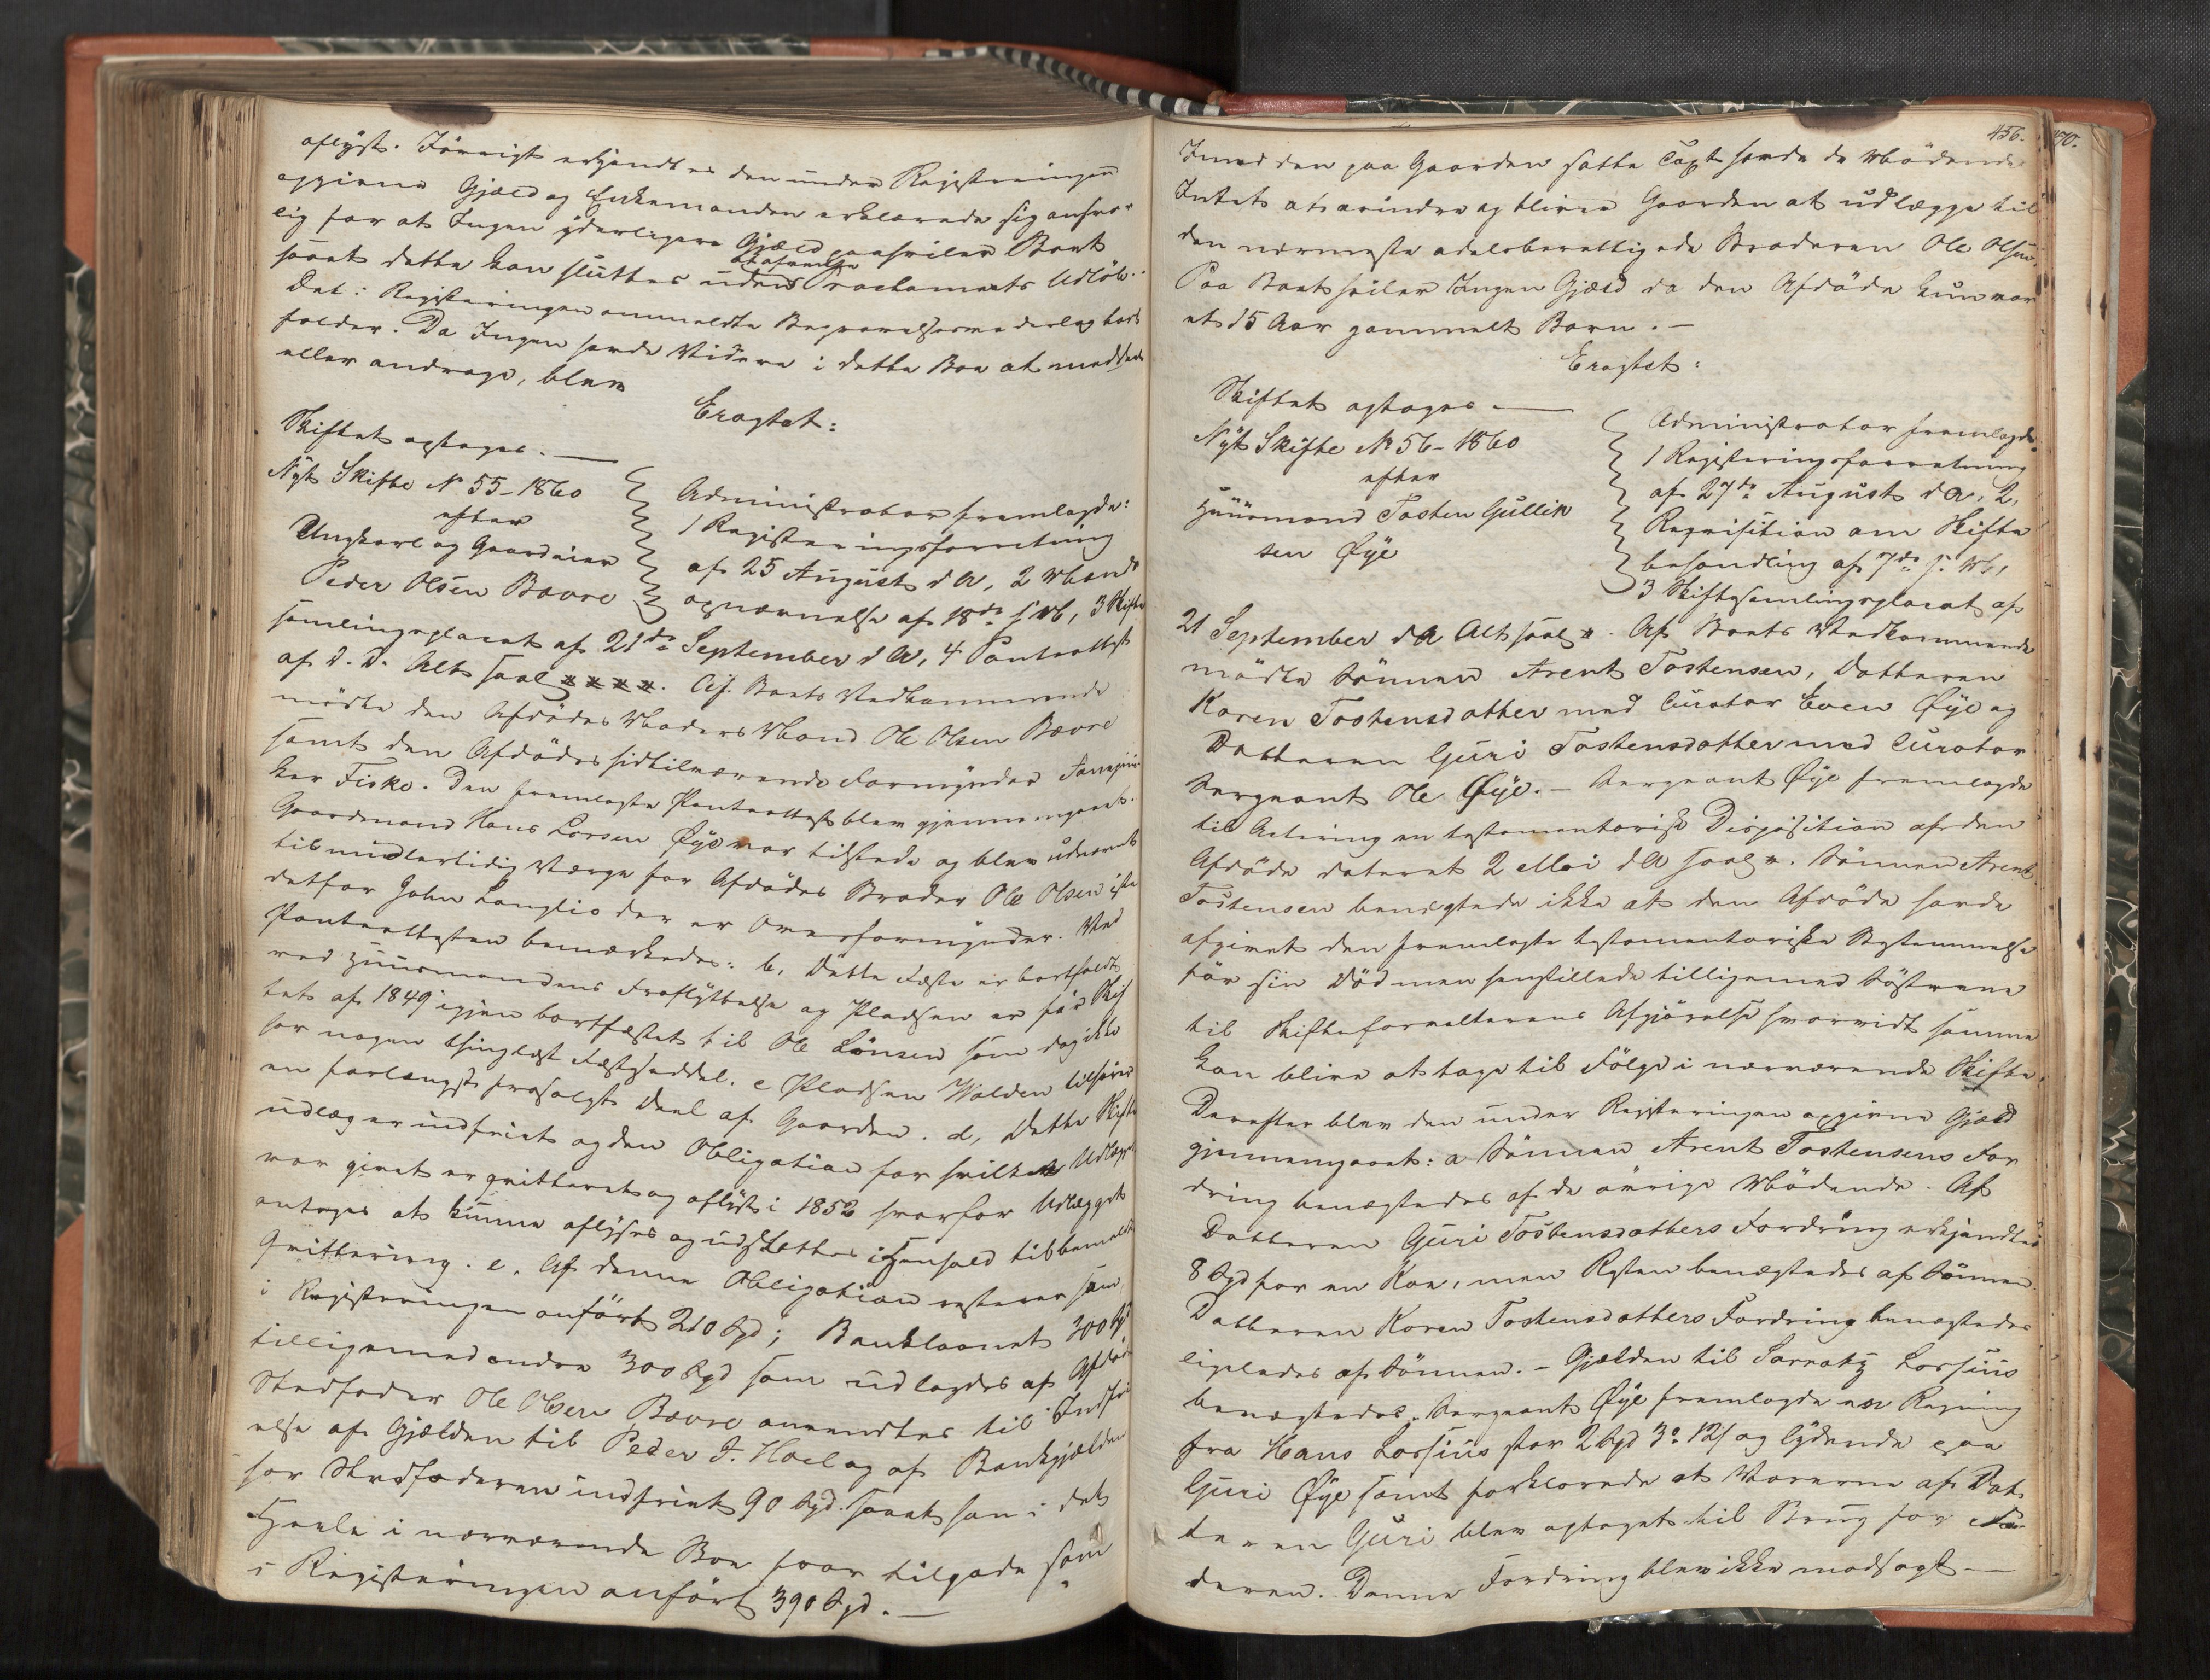 aflyst. Føvrigt erkjendtes den under Registreringen
opgivne Gjæld og Enkemanden erklærede sig ansvar-
lig for at Ingen yderligere Gjæld paahviler Boet
saaat dette kan sluttes uden Proclamaets Udløb.
Det i Registeringen anmeldte Begravelse
holder. Da Ingen havde Videre i dette Boe at meddele
eller andrage, blev
Eragtet:
Skiftet optages.
Nyt Skifte No 55-1860
efter
Ungkarl og Gaardeier
Peder Olsen Bævre
Administrator fremlagde:
1 Registeringsforretning
af 25 August d A, 2
opnævnelse af 18de s. M, 3 Skifte
samlingsplacat af 21de September d A, 4 Panteattest
af d. D. Alt saal. Af Boets Vedkommende
mødte den Afdødes Moders Mand Ole Olsen Bævre
samt den Afdødes sidstilværende Formynder
Fiske. Den fremlagte Panteattest blev gjennemgaaet.
Gaardmand Hans Larsen Øye var tilstede og blev udnævnt
til midlertidig Værge for Afdødes Broder Ole Olsen istedetfor
John Langlie der er Overformynder. Ved
Panteattesten bemærkedes: b, Dette Fæste er bortfaldt
ved Huusmandens Fraflyttelse og Pladsen er før Skif
tet af 1849 igjen bortfæstet til Ole Larsen som dog ikke
har nogen thinglæst Fæsteseddel. c Pladsen Volden tilhører
en forlængst frasolgt Deel af Gaarden. d, Dette Skifte
udlæg er indfriet og den Obligation for hvilken Udlægget
var givet er qvitteret og aflyst i 1852 hvorfor Udlægget
antages at kunne aflyses og udslettes i Henhold til bemeldte
Qvittering. e. Af denne Obligation resterer som
i Registeringen anført 210 Spd; Banklaanet 300 Spd
tilligemed andre 300 Spd som udlagdes af Afdødes
Stedfader Ole Olsen Bævre anvendtes til Indfri
else af Gjælden til Peder J. Hoel og af Bankgjælden
har Stedfaderen indfriet 90 Spd. saaat han i det
Heele i nærværende Boe har tilgode som
i Registeringen anført 390 Spd.
456.
Imod den paa Gaarden satte Taxt havde de Mødende
Intet at erindre og bliver Gaarden at udlægge til
den nærmeste odelsberettigede Broderen Ole Olsen.
Paa Boet hviler Ingen Gjæld da den Afdøde kun var
et 15 Aar gammelt Barn.
Eragtet:
Skiftet optages.
Nyt Skifte No 56-1860
efter
Huusmand Tosten Gullik
sen Øye
Administrator fremlagde
1 Registeringsforretning
af 27de August d A, 2,
Reqvisition om Skifte
behandling af 7de s. M,
3 Skiftesamlingsplacat af
21 September d A Alt saal. Af Boets Vedkommende
mødte Sønnen Arent Tostensen, Datteren
Karen Tostensdatter med Curator Even Øye og
Datteren Guri Tostensdatter med Curator
Sergeant Ole Øye. - Sergeant Øye fremlagde
til Actering en testamentarisk Disposition af den
Afdøde dateret 2 Mai d A saal. Sønnen Arent
Tostensen benægtede ikke at den Afdøde havde
afgivet den fremlagte testamentariske Bestemmelse
før sin Død men henstillede tilligemed Søstrene
til Skifteforvalterens Afgjørelse hvorvidt samme
kan blive at tage til Følge i nærværende Skifte.
Derefter blev den under Registeringen opgivne Gjæld
gjennemgaaet: a Sønnen Arent Tostensens For
dring benægtedes af de øvrige Mødende. Af
Datteren Guri Tostensdatters Fordring erkjendtes
8 Spd for en Koe, men Resten benægtedes af Sønnen.
Datteren Karen Tostensdatters Fordring benægtedes
ligeledes af Sønnen. - Gjælden til Lossius
benægtedes. Sergeant Øye fremlagde en Regning
fra Hans Lossius stor 2 Spd 3o 12s og lydende paa
Guri Øye samt forklarede at Varerne af Dat
teren Guri blev optaget til Brug for Fa
deren. Denne Fordring blev ikke modsagt